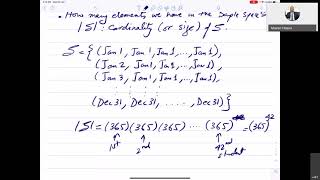 • How many elements we have in the Sample Space
|S| : Cardinality (or size) of S.
S = { (Jan 1, Jan 1, Jan 1, ..., Jan 1),
(Jan 2, Jan 1, Jan 1, ..., Jan 1),
(Jan 3, Jan 1, Jan 1, ..., Jan 1),
(Dec 31, Dec 31, ..... , Dec 31) }
|S| = (365)(365)(365) ..... (365) = (365)^42
1st 2nd 42nd
student